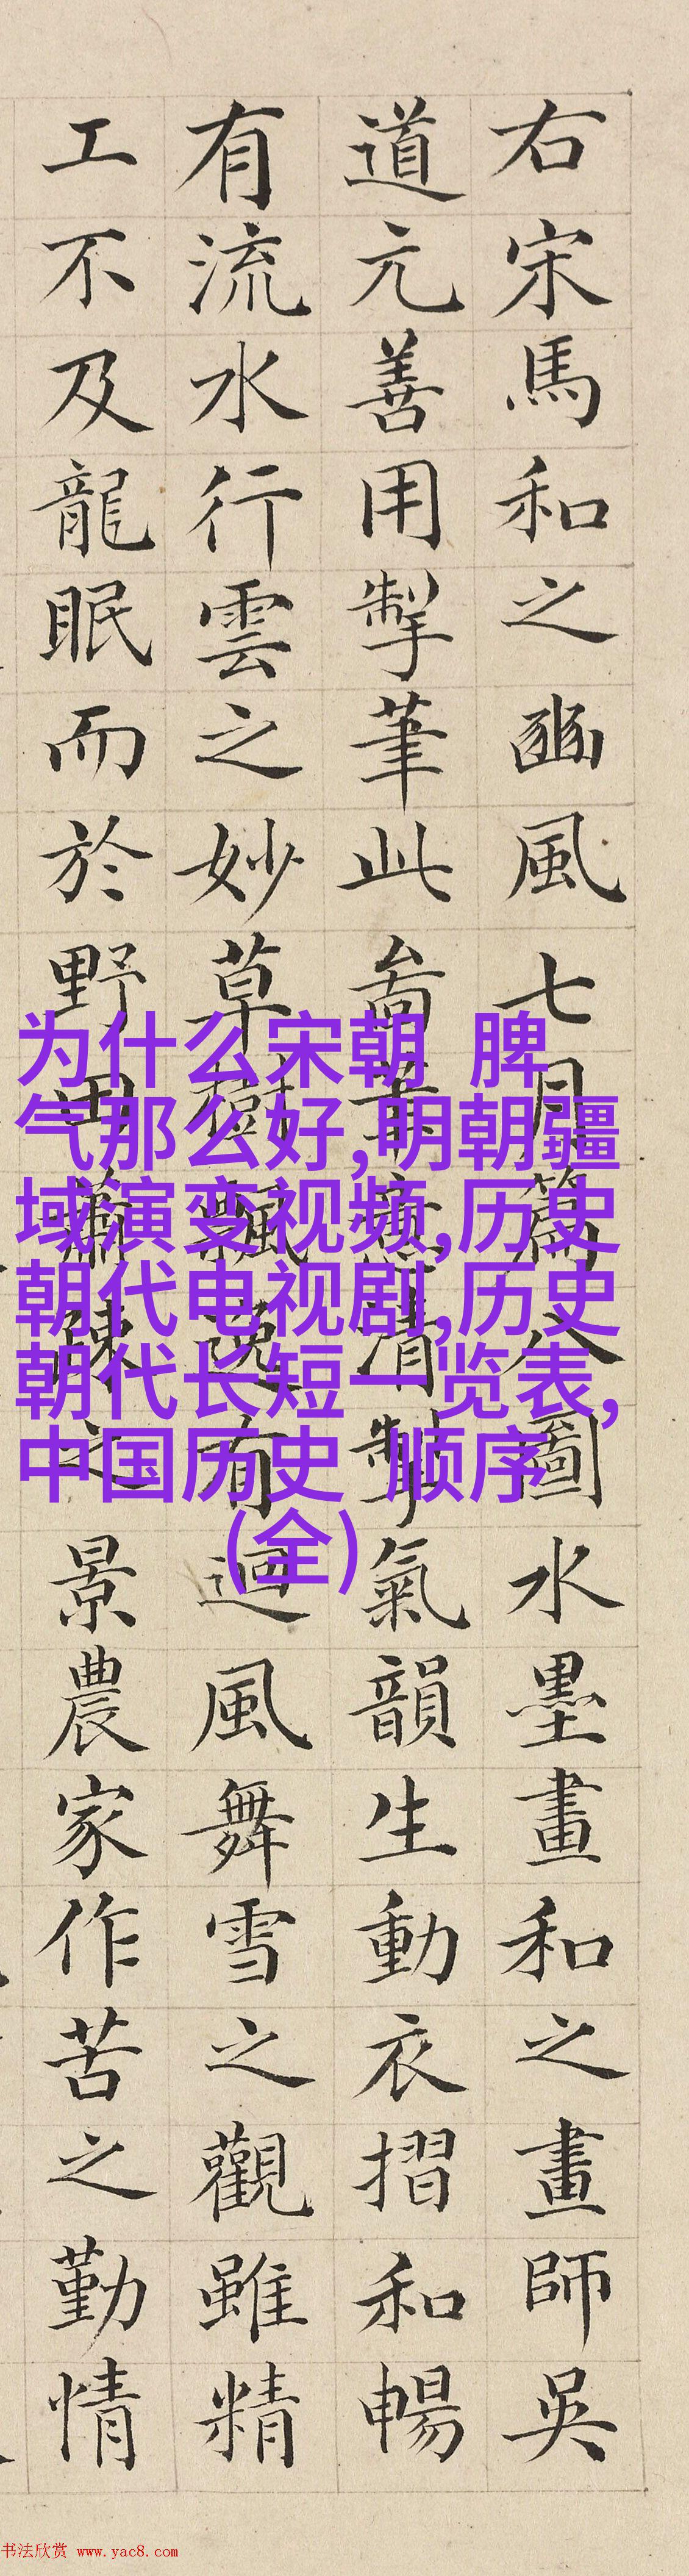 右宋馬和之豳風七月篇八圖水墨畫和之畫師吳
道元善用掣筆此啚筆意清掣氣韻生動衣摺和暢
有流水行雲之妙草樹飄逸有迴風舞雪之觀雖精
工不及龍眠而於野田蕭疎之景農家作苦之勤情
为什么宋朝 脾
气那么好,明朝疆
域演变视频,历史
朝代电视剧,历史
朝代长短一览表,
中国历史 顺序
(全)
书法欣赏 www.yac8.com